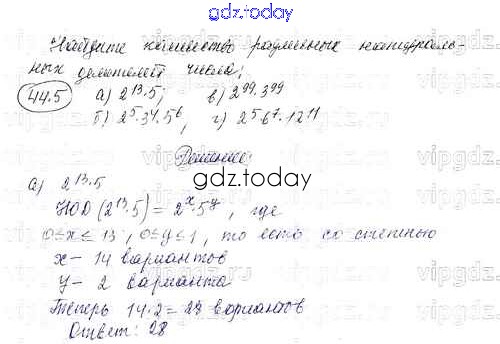 gdz.today
Найдите количество различных натураль-
ных делителей числа:
44.5 а) 2^13·5; в) 2^99·3^99
б) 2^5·3^4·5^6, г) 2^5 6^7·12^11
Решение:
gdz.today
а) 2^13·5
НОД (2^13·5) = 2^x·5^y, где
0≤x≤13, 0≤y≤1, то есть со степенью
x - 14 вариантов
y - 2 варианта
Теперь 14·2=28 вариантов
Ответ: 28